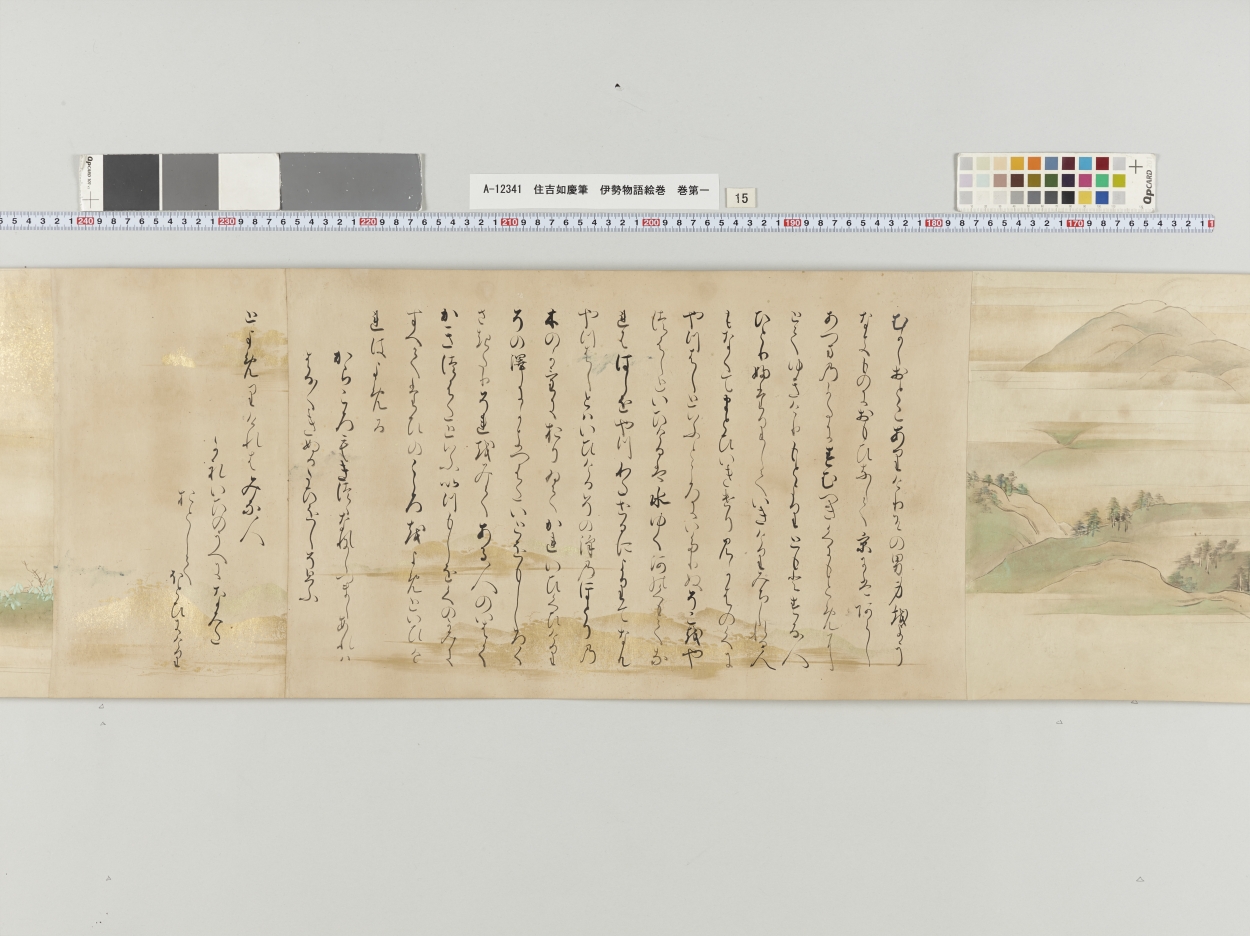 むかしおとこありけりその男身をよう
なきものにおもひなして京にはあらし
あつまのかたにすむへきくにもとめに
とてゆきけりもとよりともとする人
ひとりふたりしていきけりみちしれる人
もなくてまとひいきけりみかはのくに
やつはしといふところにいたりぬそこをや
つはしといひけるは水ゆく河のくもてな
れははしをやつわたせるによりてなん
やつはしとはいひけるその澤のほとりの
木のかけにおりゐてかれいひくひけり
その澤にかきつはたいとおもしろく
さきたりそれをみてある人のいはく
かきつはたといふ五もしをくのかみに
すへてたひのこころをよめといひけ
れはよめる
からころもきつつなれにしつましあれは
はるはるきぬるたひをしそおもふ
とよめりけれはみな人
かれいひのうへになみた
おとして
ほとひにけり
A-12341 住吉如慶筆 伊勢物語絵巻 巻第一
15